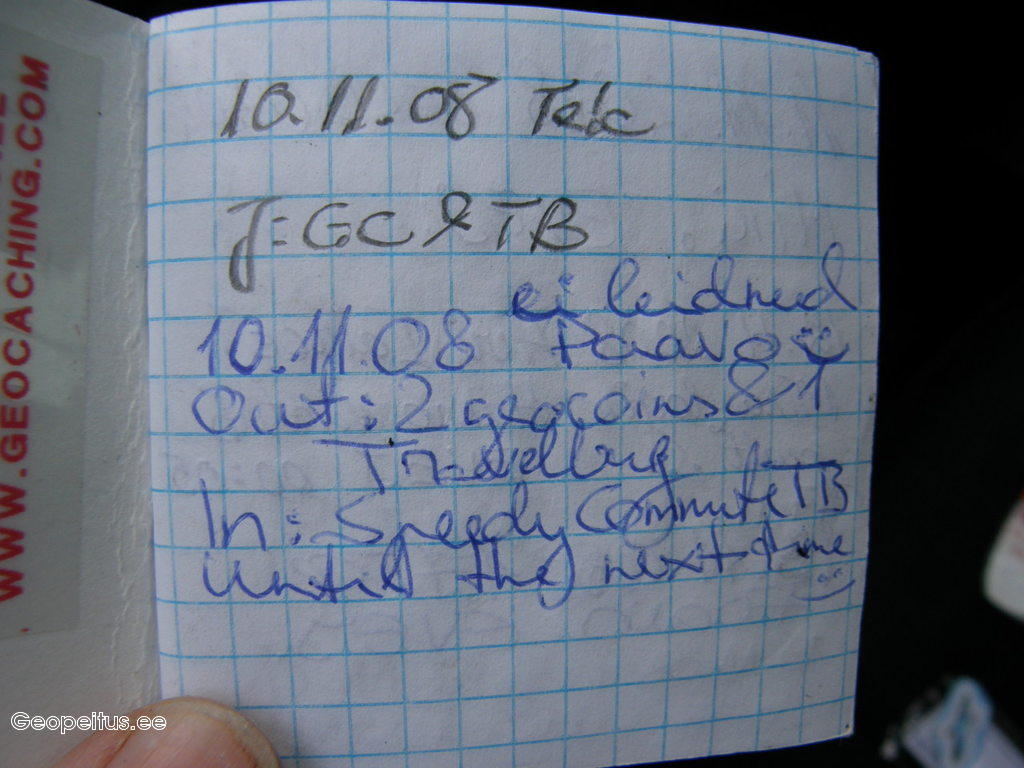 WWW.GEOCACHING.COM
10.11.08 Telc
J=GC & TB
ei leidnud
10.11.08 Paavo
Out: 2 geocoins & 1
Travelbug
In: Speedy Commute TB
until the next time
Geopeitus.ee